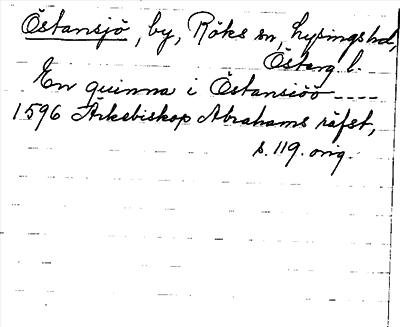 Östansjö, by, Röks sn, Lysings hd,
Österg l.
En quinna i Östansiöö ----
1596 Ärkebiskop Abrahams räfst,
s. 119. orig.